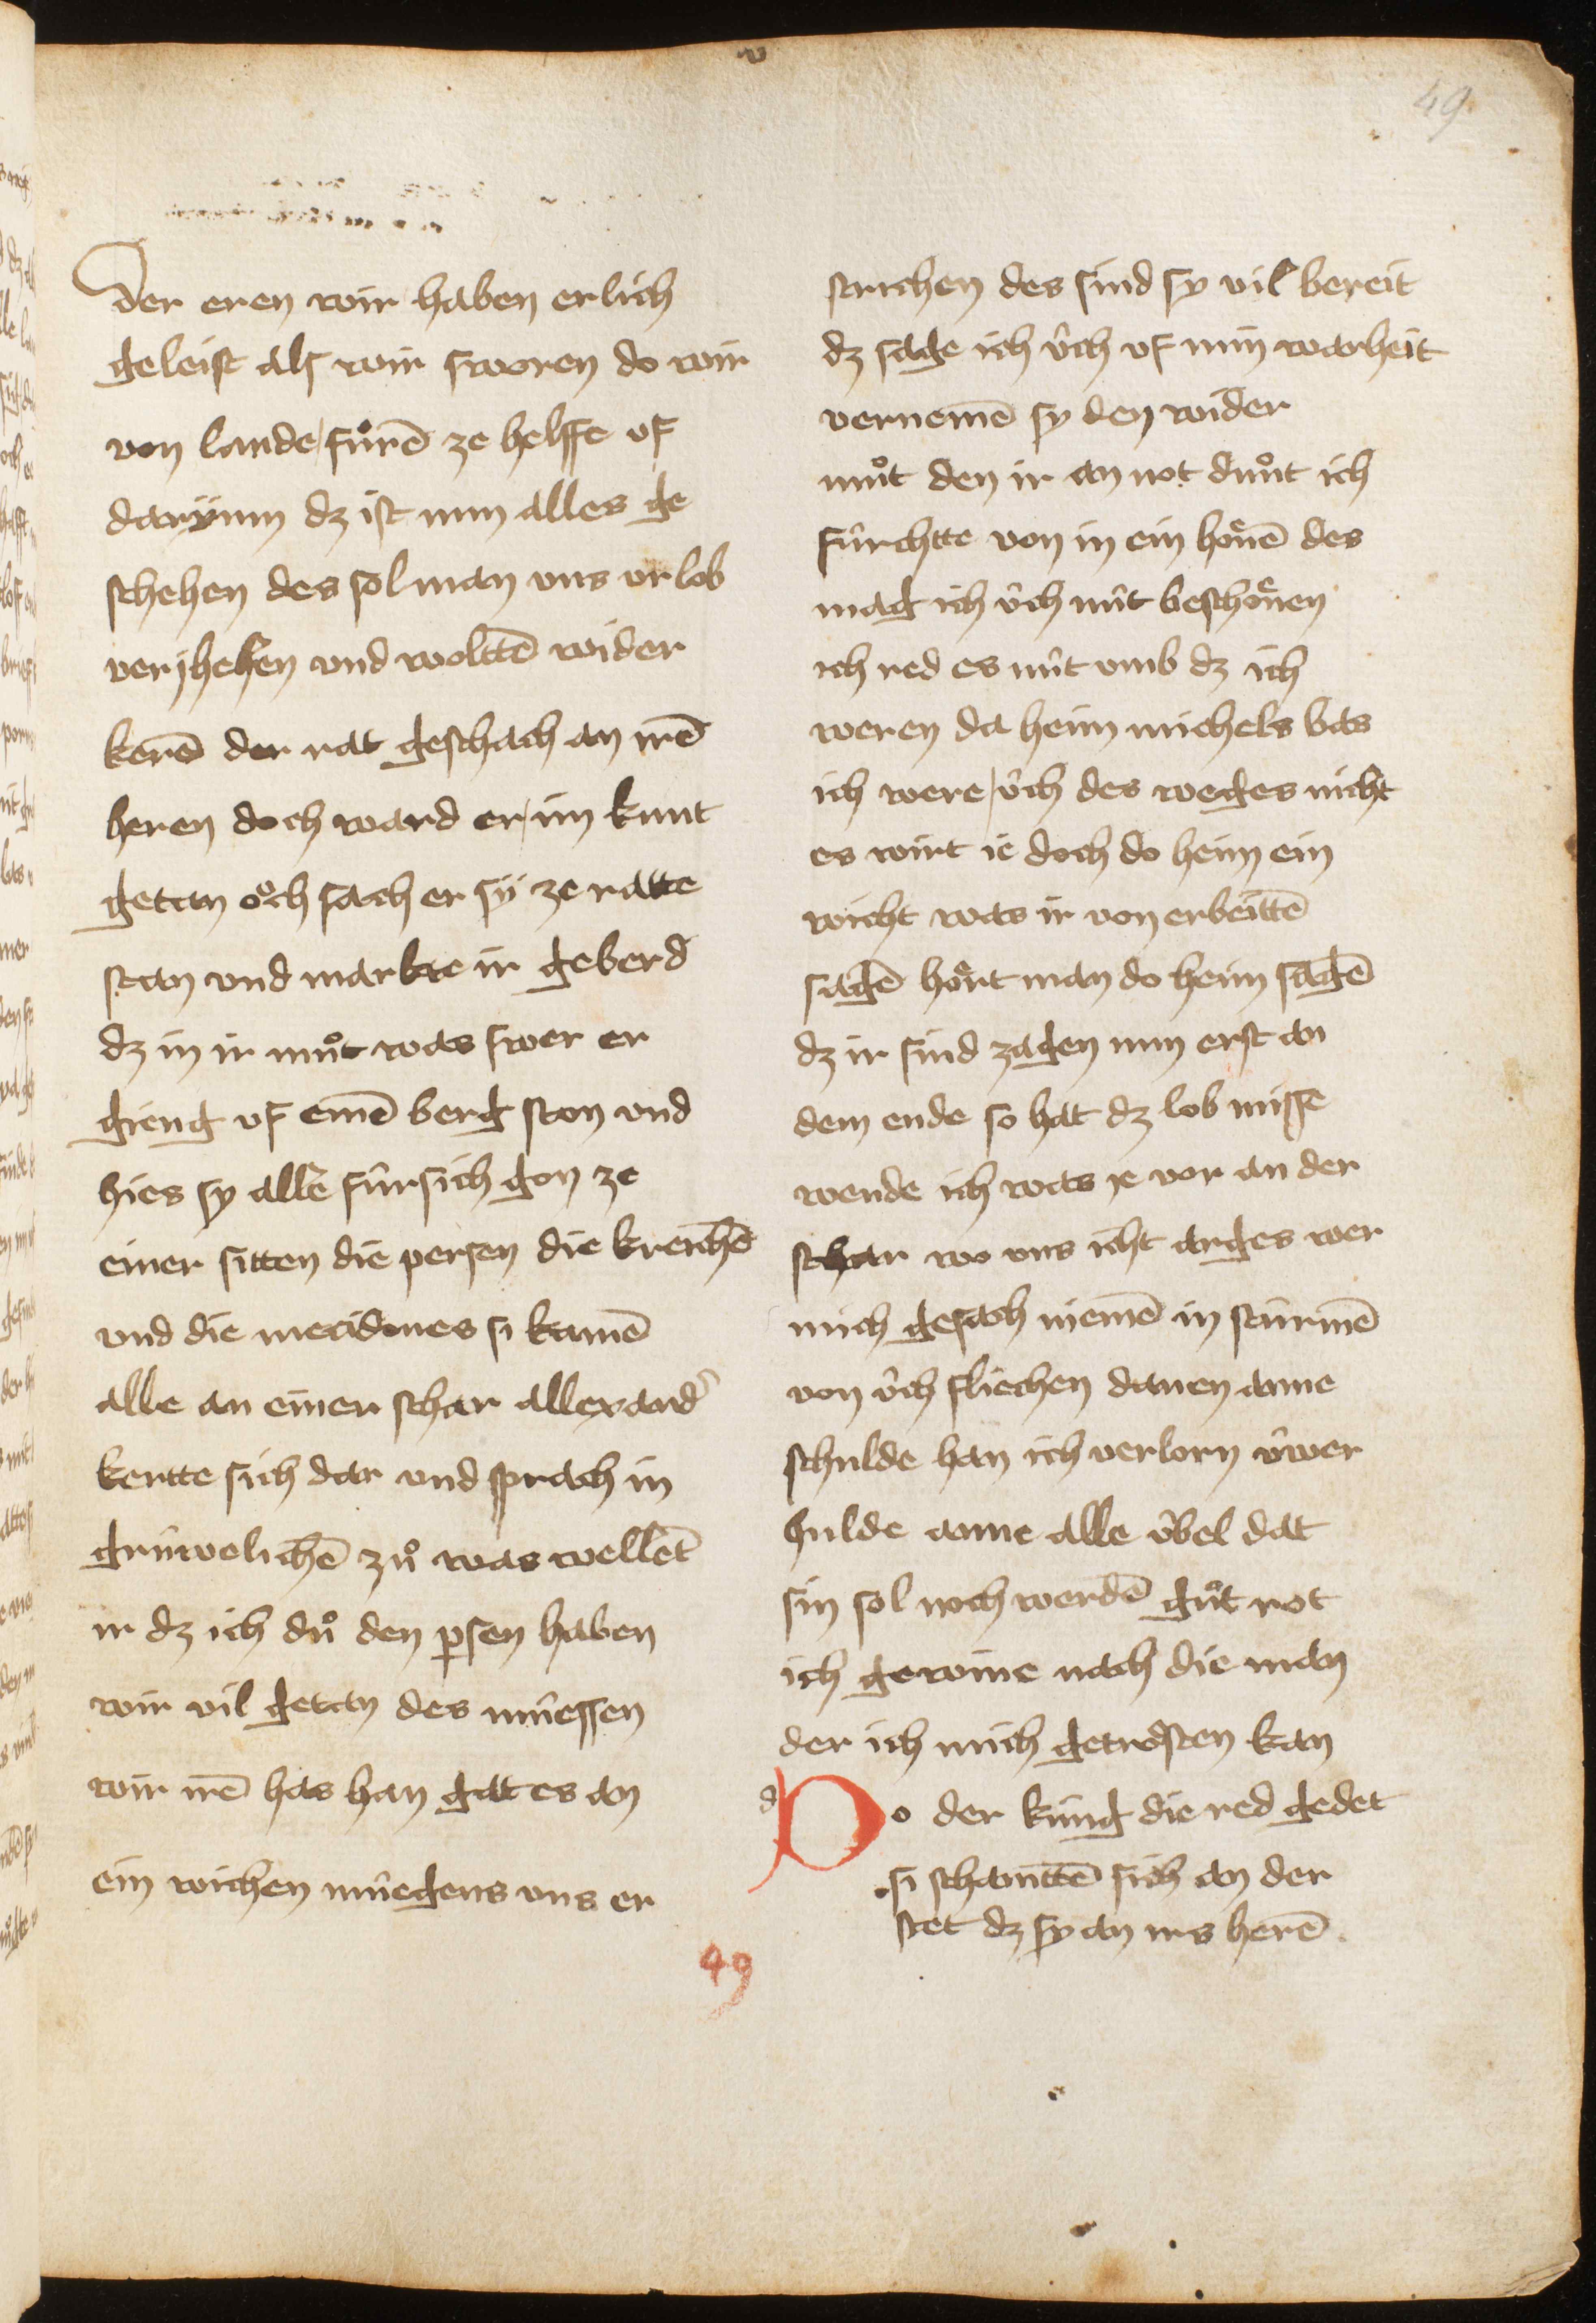 49
der eren wir haben erlich
geleist als wir sworen do wir
von lande fuͦrē ze helffe vf
daryͤum dz ist nun alles ge
schehen des sol man vns vrlob
verjhehen vnd wolttē wider
kerē der rat geschach an irē
heren doch ward er im kunt
getan oͮch sach er sÿ ze ratte
stan vnd markte ir geberd
dz in ir muͦt was swer er
gieng vf einē berg ston vnd
hies sy alle fúrsich gon ze
einer sitten die persen die kreichē
vnd die mecidones si kamē
alle an einer schar allexand᷑
kertte sich dar vnd sprach in
grúwelichē zuͦ was wellēt
ir dz ich duͦ den p̄sen haben
wir vil getan des múessen
wir irē has han gat es an
ein wichen múegens vns er
sterchen des sind sy vil bereit
dz sage ich v́ch vf min warheit
vernemē sy den wider
muͦt den ir an not duͦt ich
fúrchtte von in ein hoͤnē des
mag ich v́ch nút beschoͤnen
ich red es nút vmb dz ich
weren da heim michels bas
ich were v́ch des weges nicht
es wirt ie doch do heim ein
wicht was ir von erbeittē
sagē hoͤrt man do heim sagē
dz ir sind zagen nun erst an
dem ende so hat dz lob misse
wende ich was ie vor an der
schar wo vns icht arges wer
mich gesach niemē in stúrmē
von v́ch fliechen danen anne
schulde han ich verlorn v́wer
hulde anne alle v́bel dat
sin sol noch werdē guͦt rot
ich gewine nach die man
der ich mich getrosten kan
Do der kúng die red gedet
si schamttē sich an der
stet dz sy an irs herē
49